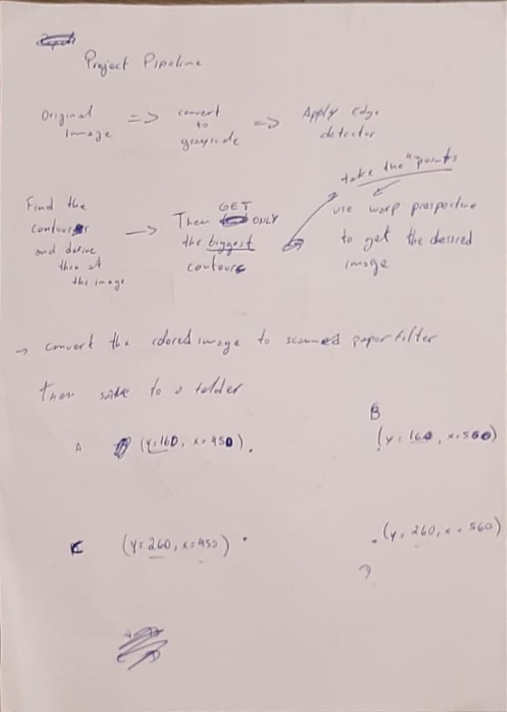 Project Pipeline
Original
image
=> convert
to
grayscale
=> Apply Edge
detector
Find the
contours
and define
then at
the image
→ Then GET ONLY
the biggest
contours
take the 4 points
use warp prespective
to get the desired
image
→ convert the colored image to scanned paper filter
then save to a folder
A (y=160, x=450)
B
(y=160, x=560)
C (y=260, x=450)
(y=260, x=560)